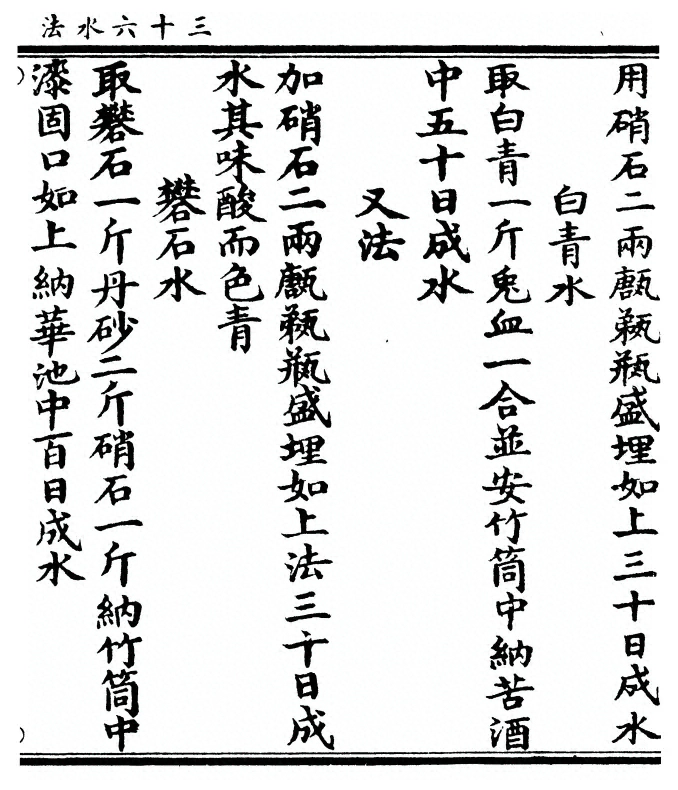 三十六水法
用硝石二兩甗㼭瓶盛埋如上三十日成水
白青水
取白青一斤兔血一合並安竹筒中納苦酒
中五十日成水
又法
加硝石二兩甗㼭瓶盛埋如上法三十日成
水其味酸而色青
礬石水
取礬石一斤丹砂二斤硝石一斤納竹筒中
漆固口如上納華池中百日成水